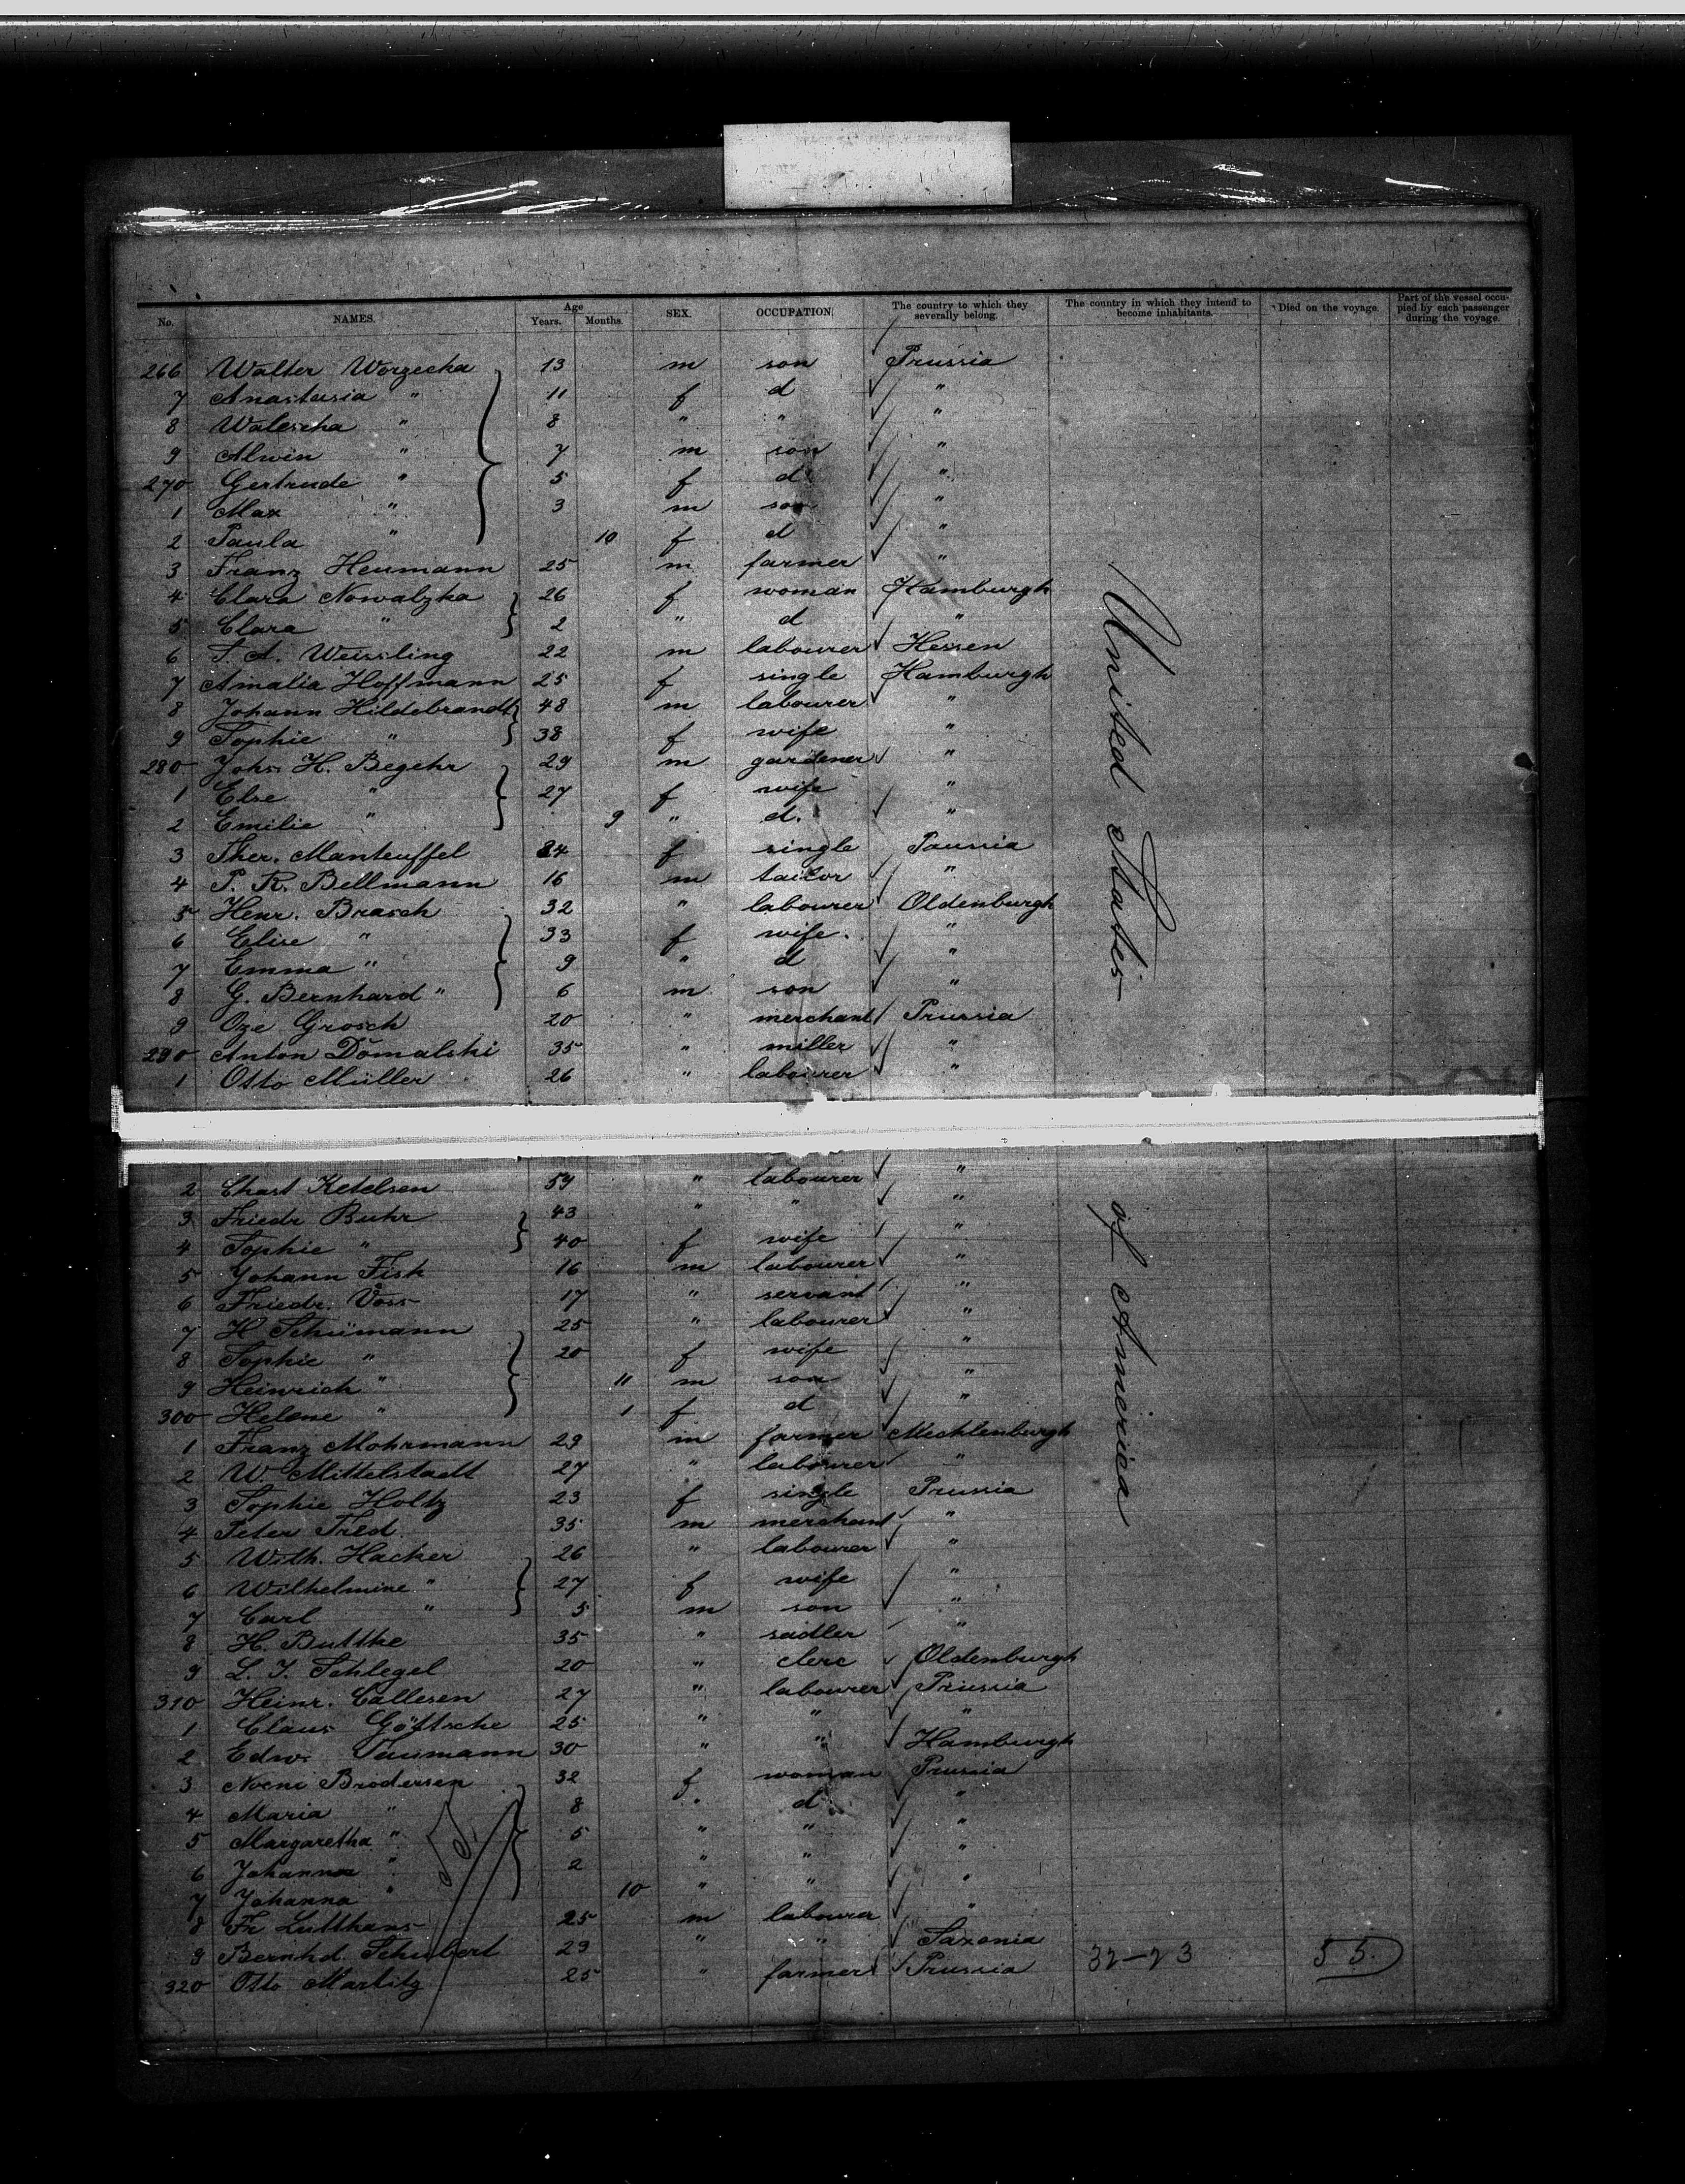 No. NAMES. Age Years. Months. SEX. OCCUPATION. The country to which they severally belong. The country in which they intend to become inhabitants. Died on the voyage. Part of the vessel occupied by each passenger during the voyage.
266 Walter Worzecka 13 m son Prussia
7 Anastasia " 11 f d "
8 Walescha " 8 " " "
9 Alwin " 7 m son "
270 Gertrude " 5 f d "
1 Max " 3 m son "
2 Paula " 10 f d "
3 Franz Heumann 25 m farmer "
4 Clara Nowalzka 26 f woman Hamburgh
5 Clara " 2 " d "
6 S. A. Weissling 22 m labourer Hessen
7 Amalia Hoffmann 25 f single Hamburgh
8 Johann Hildebrandt 48 m labourer "
9 Sophie " 38 f wife "
280 Johs. H. Begehr 29 m gardener "
1 Else " 27 f wife "
2 Emilie " 9 " d. "
3 Ther. Manteuffel 24 f single Paussia
4 P. R. Bellmann 16 m tailor "
5 Henr. Brasch 32 " labourer Oldenburgh
6 Elise " 33 f wife. "
7 Emma " 9 " d "
8 G. Bernhard " 6 m son "
9 Oze Grosch 20 " merchant Prussia
290 Anton Domalski 35 " miller "
1 Otto Müller 26 " labourer "
United States
2 Chast Ketelsen 59 " labourer "
3 Friedr Buhr 43 " " "
4 Sophie " 40 f wife "
5 Johann Fisk 16 m labourer "
6 Friedr. Voss 17 " servant "
7 H Schümann 25 " labourer "
8 Sophie " 20 f wife "
9 Heinrich " 11 m son "
300 Helene " 1 f d "
1 Franz Mohrmann 29 m farmer Mecklenburgh
2 W. Mittelstadt 27 " labourer "
3 Sophie Holtz 23 f single Prussia
4 Peter Fred. 35 m merchant "
5 Wilh. Hacker 26 " labourer "
6 Wilhelmine " 27 f wife "
7 Carl " 5 m son "
8 H. Buttke 35 " sadler "
9 L. J. Schlegel 20 " clerc Oldenburgh
310 Heinr. Callesen 27 " labourer Prussia
1 Claus Göttsche 25 " " "
2 Edw. Taumann 30 " " Hamburgh
3 Nocni Brodersen 32 f woman Prussia
4 Maria " 8 " d "
5 Margaretha " 5 " " "
6 Johanna " 2 " " "
7 Johanna " 10 " " "
8 Fr Lutthans 25 m labourer "
9 Bernhd. Schubert 29 " " Saxonia
320 Otto Marlitz 25 " farmer Prussia
of America
32-23 55.